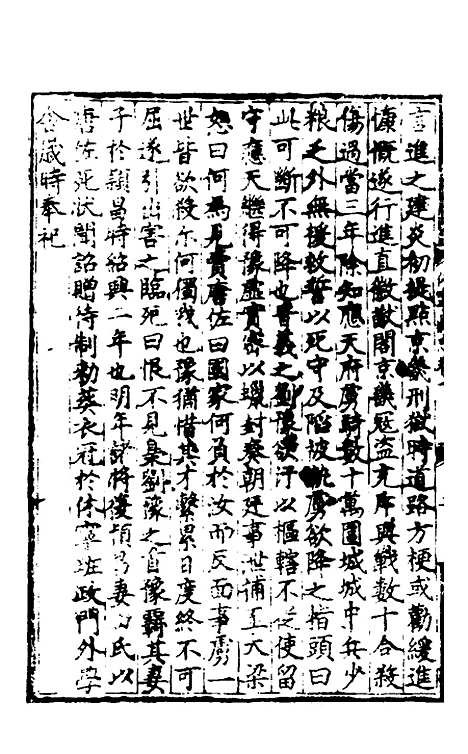 言進之建炎初提點京畿刑獄時道路方梗或勸緩進
慷慨遂行進直徽猷閣京畿冦盗充斥與戰數十合殺
傷過當三年除知應天府虜騎數十萬圍城城中兵少
粮乏外無援救誓以死守及陷被執虜欲降之指頭曰
此可斷不可降也晉義之劉豫欲汙以樞轄不從使留
守應天繼得豫虛實密以蠟封奏朝廷事世補至大梁
恕曰何為見賣唐佐曰國家何負於汝而反面事虜一
世皆欲殺尔何獨我也豫猶惜其才繫累日度終不可
屈遂引出害之臨死曰恨不見梟劉豫之首像羈其妻
子於潁昌時紹興二年也明年諸將復潁昌妻 氏以
唐佐死状聞詔贈待制勑葬衣冠於休寧班政門外學
舍歲時奉祀